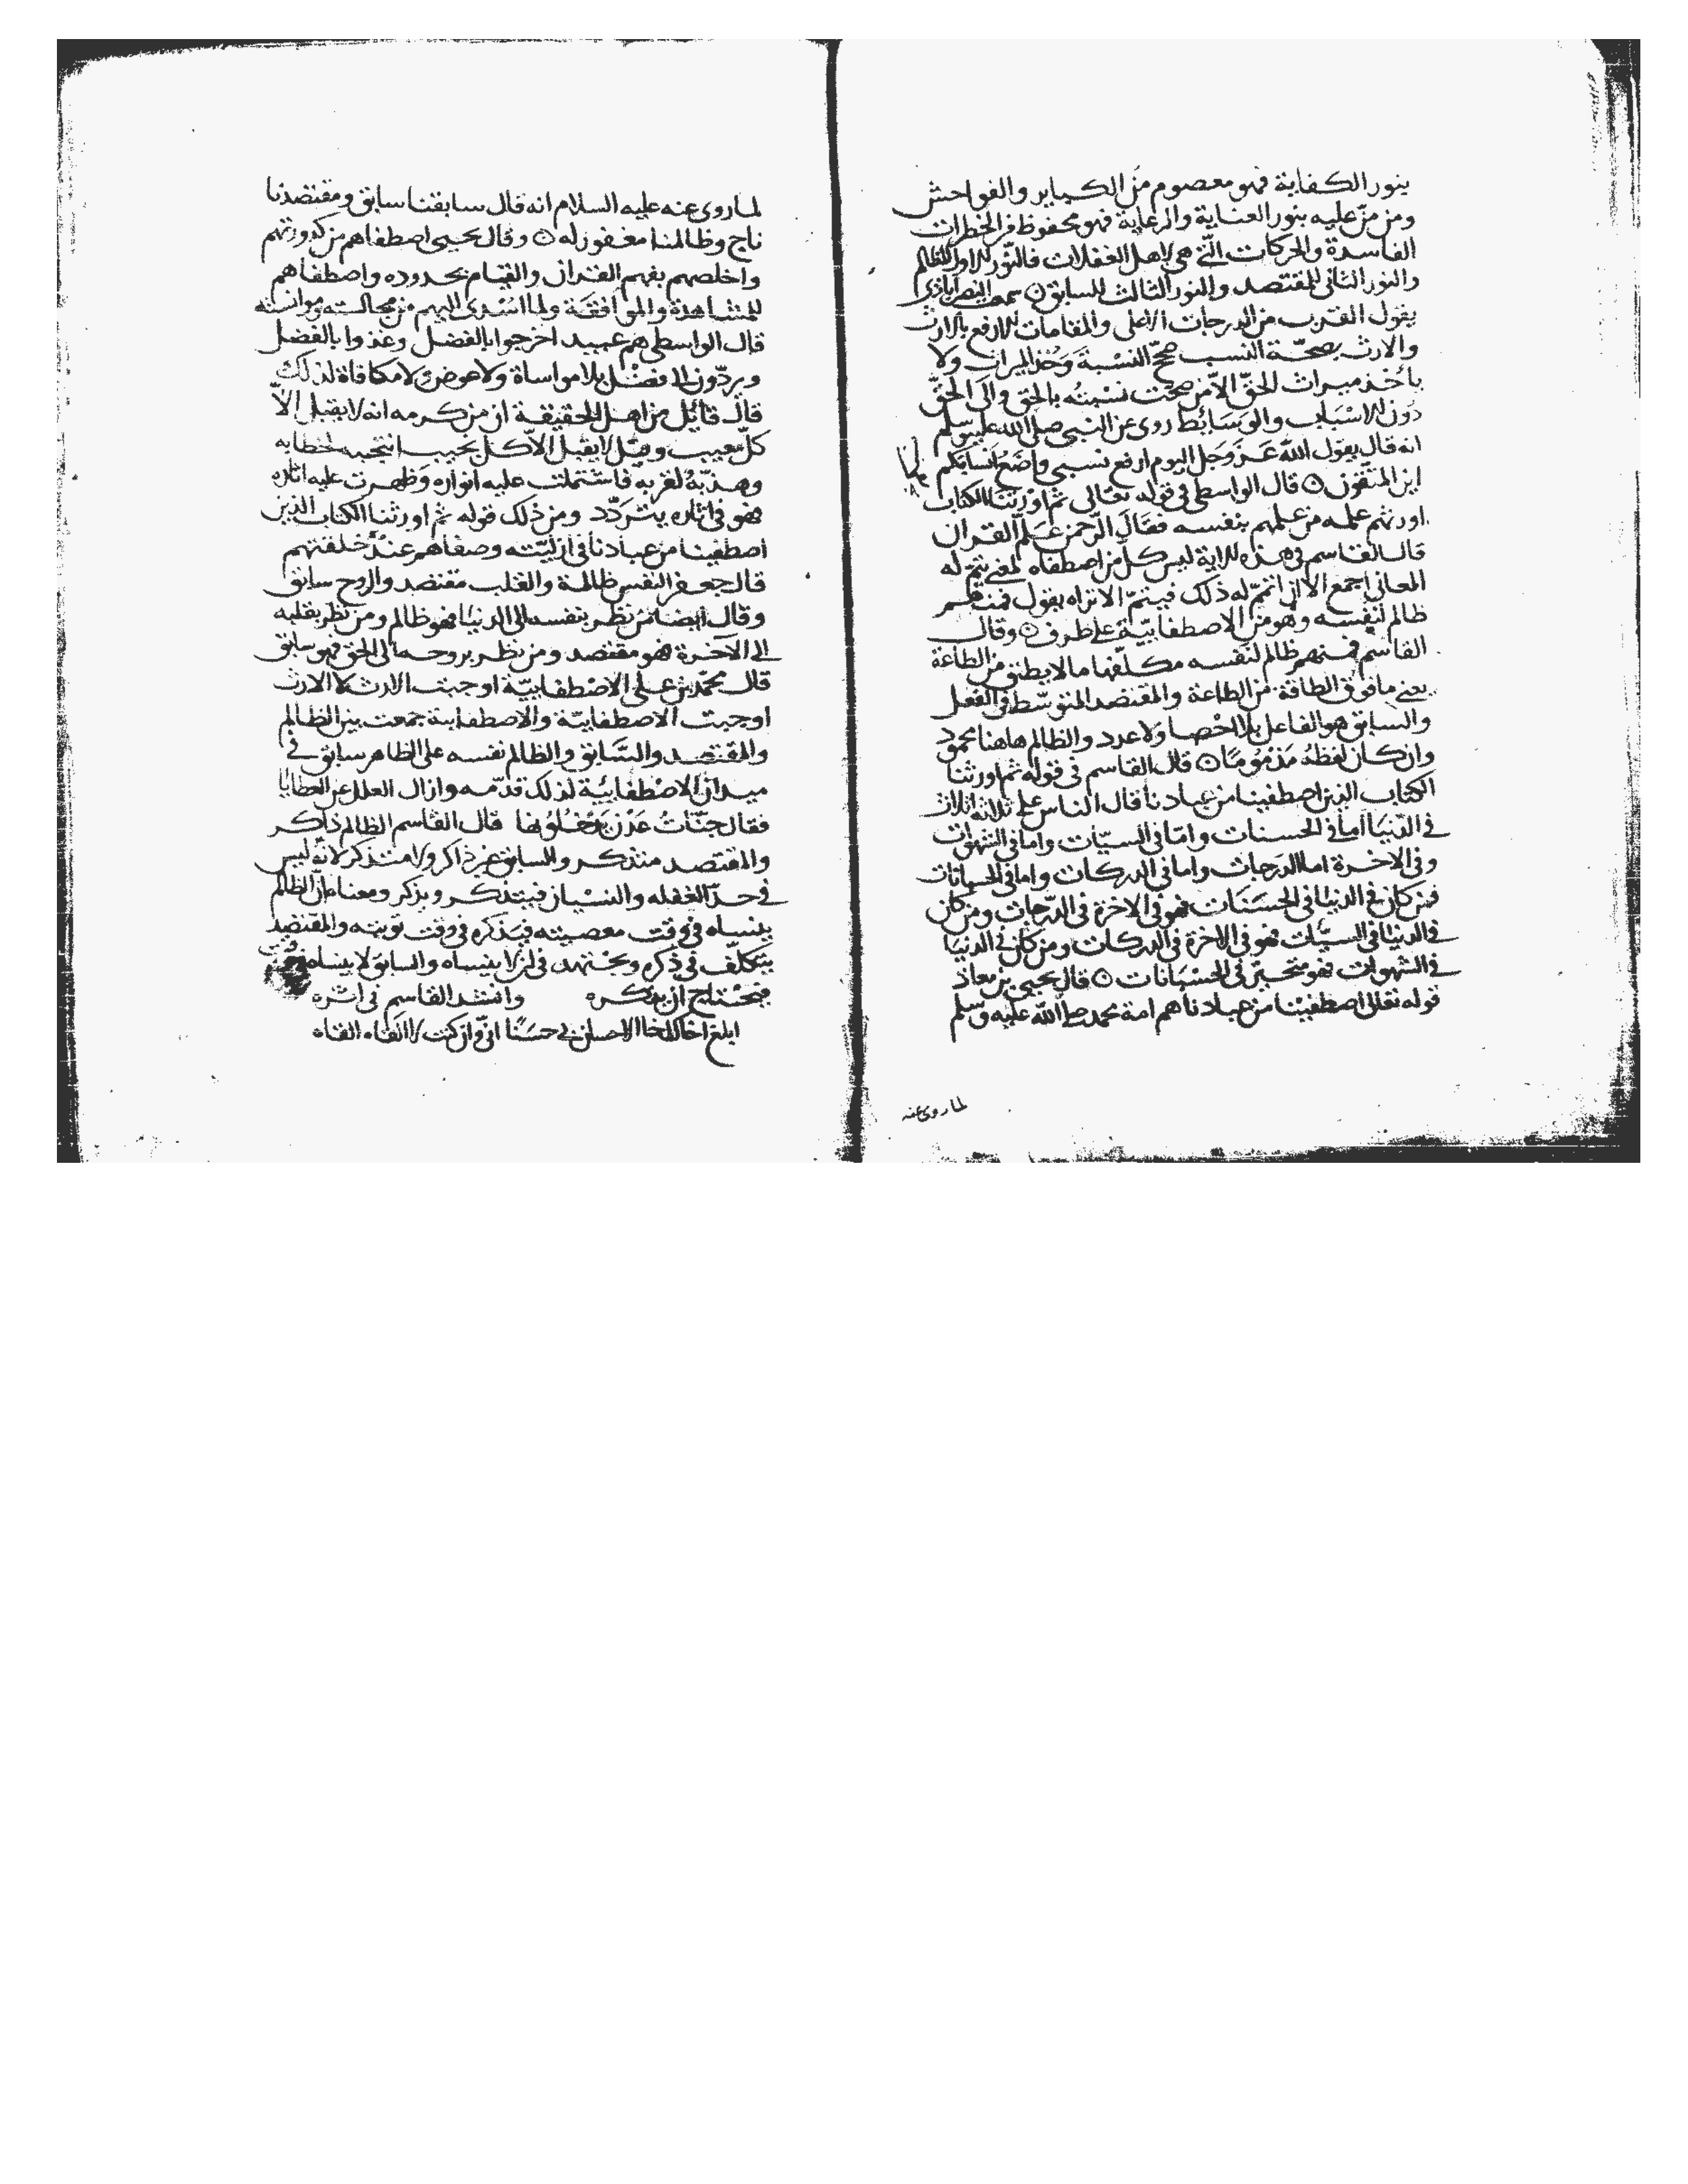 بنور الكفاية فهو معصوم من الكباير والفواحش
ومن منّ عليه بنور العناية والرعاية فهو محفوظ من الخطرات
الفاسدة والحركات الّتي هي لاهل الغفلات فالنّور الاول للظالم
والنور الثاني للمقتصد والنور الثالث للسابق ٥ سمعت النصراباذي
يقول القرب من الدرجات الاعلى والمقامات الارفع بالارث
والارث بصحّة النسب صحّح النسبة وخذ الميراث ولا
ياخذ ميراث الحقّ الّا من صحّت نسْبتُه بالحق والى الحقّ
دُون الاسْبَاب والوسَائِط روى عن النبي صلى الله عليه وسلم
انه قال يقول الله عَزّ وَجَل اليوم ارفع نسبي واضَعُ انسابكم
اين المتّقون ٥ قال الواسطي في قوله تعالى ثم اوْرثنا الكتاب
اورثهم علمه من علمهم بنفسه فقالَ الرّحمن عَلّم القران
قال القاسم في هذه الاية ليس كلّ من اصطفاه لمعنى يتمّ له
المعاني اجمع الا ان اتمّ له ذلك فيتمّ الا تراه يقول فمنهم
ظالم لنفسه وهو من الاصطفايّية على طرف ٥ وقال
القاسم فمنهم ظالم لنفسه مكلّفها ما لا يطيق من الطاعة
يعني ما فوق الطاقة من الطاعة والمقتصد المتوسّط في الفعل
والسابق هو الفاعل بلا احْصا ولا عدد والظالم هاهنا محمود
وان كان لفظهُ مَذمُومًا ٥ قال القاسم في قوله ثم اورثنا
الكتاب الذين اصطفينا من عبادنا قال الناس على ثلاثة اثلاث
في الدّنيَا اما في الحسنات وامّا في السيّات واما في الشهوات
وفي الاخرة اما الدَرجات واما في الدركات واما في الحسبانات
فمن كان في الدنيا في الحسَنَات فهو في الاخرة في الدّرجات ومن كان
في الدنيا في السيّات فهو في الاخرة في الدركات ومن كان في الدنيا
في الشهوات فهو متحيّر في الحسْبَانات ٥ قال يحيى بن معاذ
قوله تعالى اصطفيْنا من عبادنا هم امة محمد صلى الله عليه وسلم
لما روى عنه
لما روى عنه عليه السلام انه قال سابقنا سابق ومقتصدنا
ناج وظالمنا مغفور له ٥ وقال يحيى اصطفاهم من كدورتهم
واخلصهم بفهم القران والقيام بحدوده واصطفاهم
للمشاهدة والموافقة ولما اسْدى اليهم من مجالسته وموانسته
قال الواسطي هم عبيد اخرجوا بالفضل وغذوا بالفضل
ويردّون الى فضْل بلا مواساة ولا عوض ولا مكافاة لذلك
قال قائِل من اهل الحقيقة ان من كرمه انه لا يقبل الاّ
كلّ معيب وقيل لا يقبل الاّ كل نجيب انتجبه لخطابه
وهذّبهُ لقربه فاشتملت عليه انواره وَظهرت عليه اثاره
فهو في اثاره يتردّد ومن ذلك قوله ثم اورثنا الكتاب الذين
اصطفينا من عبادنا في ازليّته وصفاهم عند خلقتهم
قال جعفر النفس ظالمة والقلب مقتصد والروح سابق
وقال ايضا من نظر بنفسه الى الدنيا فهو ظالم ومن نظر بقلبه
الى الآخرة فهو مقتصد ومن نظر بروحه الى الحق فهو سابق
قال محمّد بن علي الاصْطفاييّة اوجبت الارث لا الارث
اوجبت الاصطفاييّة والاصطفاية جمعت بين الظالم
والمقتصد والسَّابق والظالم نفسه على الظاهر سابق في
ميدان الاصْطفاييّة لذلك قدّمه وازال العلل عن العطايا
فقال جنّاتُ عَدْن يَدْخلُونها قال القاسم الظالم ذاكر
والمقتصد متذكر والسابق غير ذاكر ولا متذكر لانّه ليس
في حدّ الغفله والنسْيان فيتذكر ويذكر ومعناه انّ الظالم
ينساه في وقت معصيته فيَذكره في وقت توبته والمقتصد
يتكلّف في ذكره ويجتهد في ان لا ينساه والسابق لا ينساه
فيَحْتاج ان يذكره وانشد القاسم في اثره
ابلغ اخاك اخا الاحسان بي حسَنًا انّي وان كنت لا القاه القاه